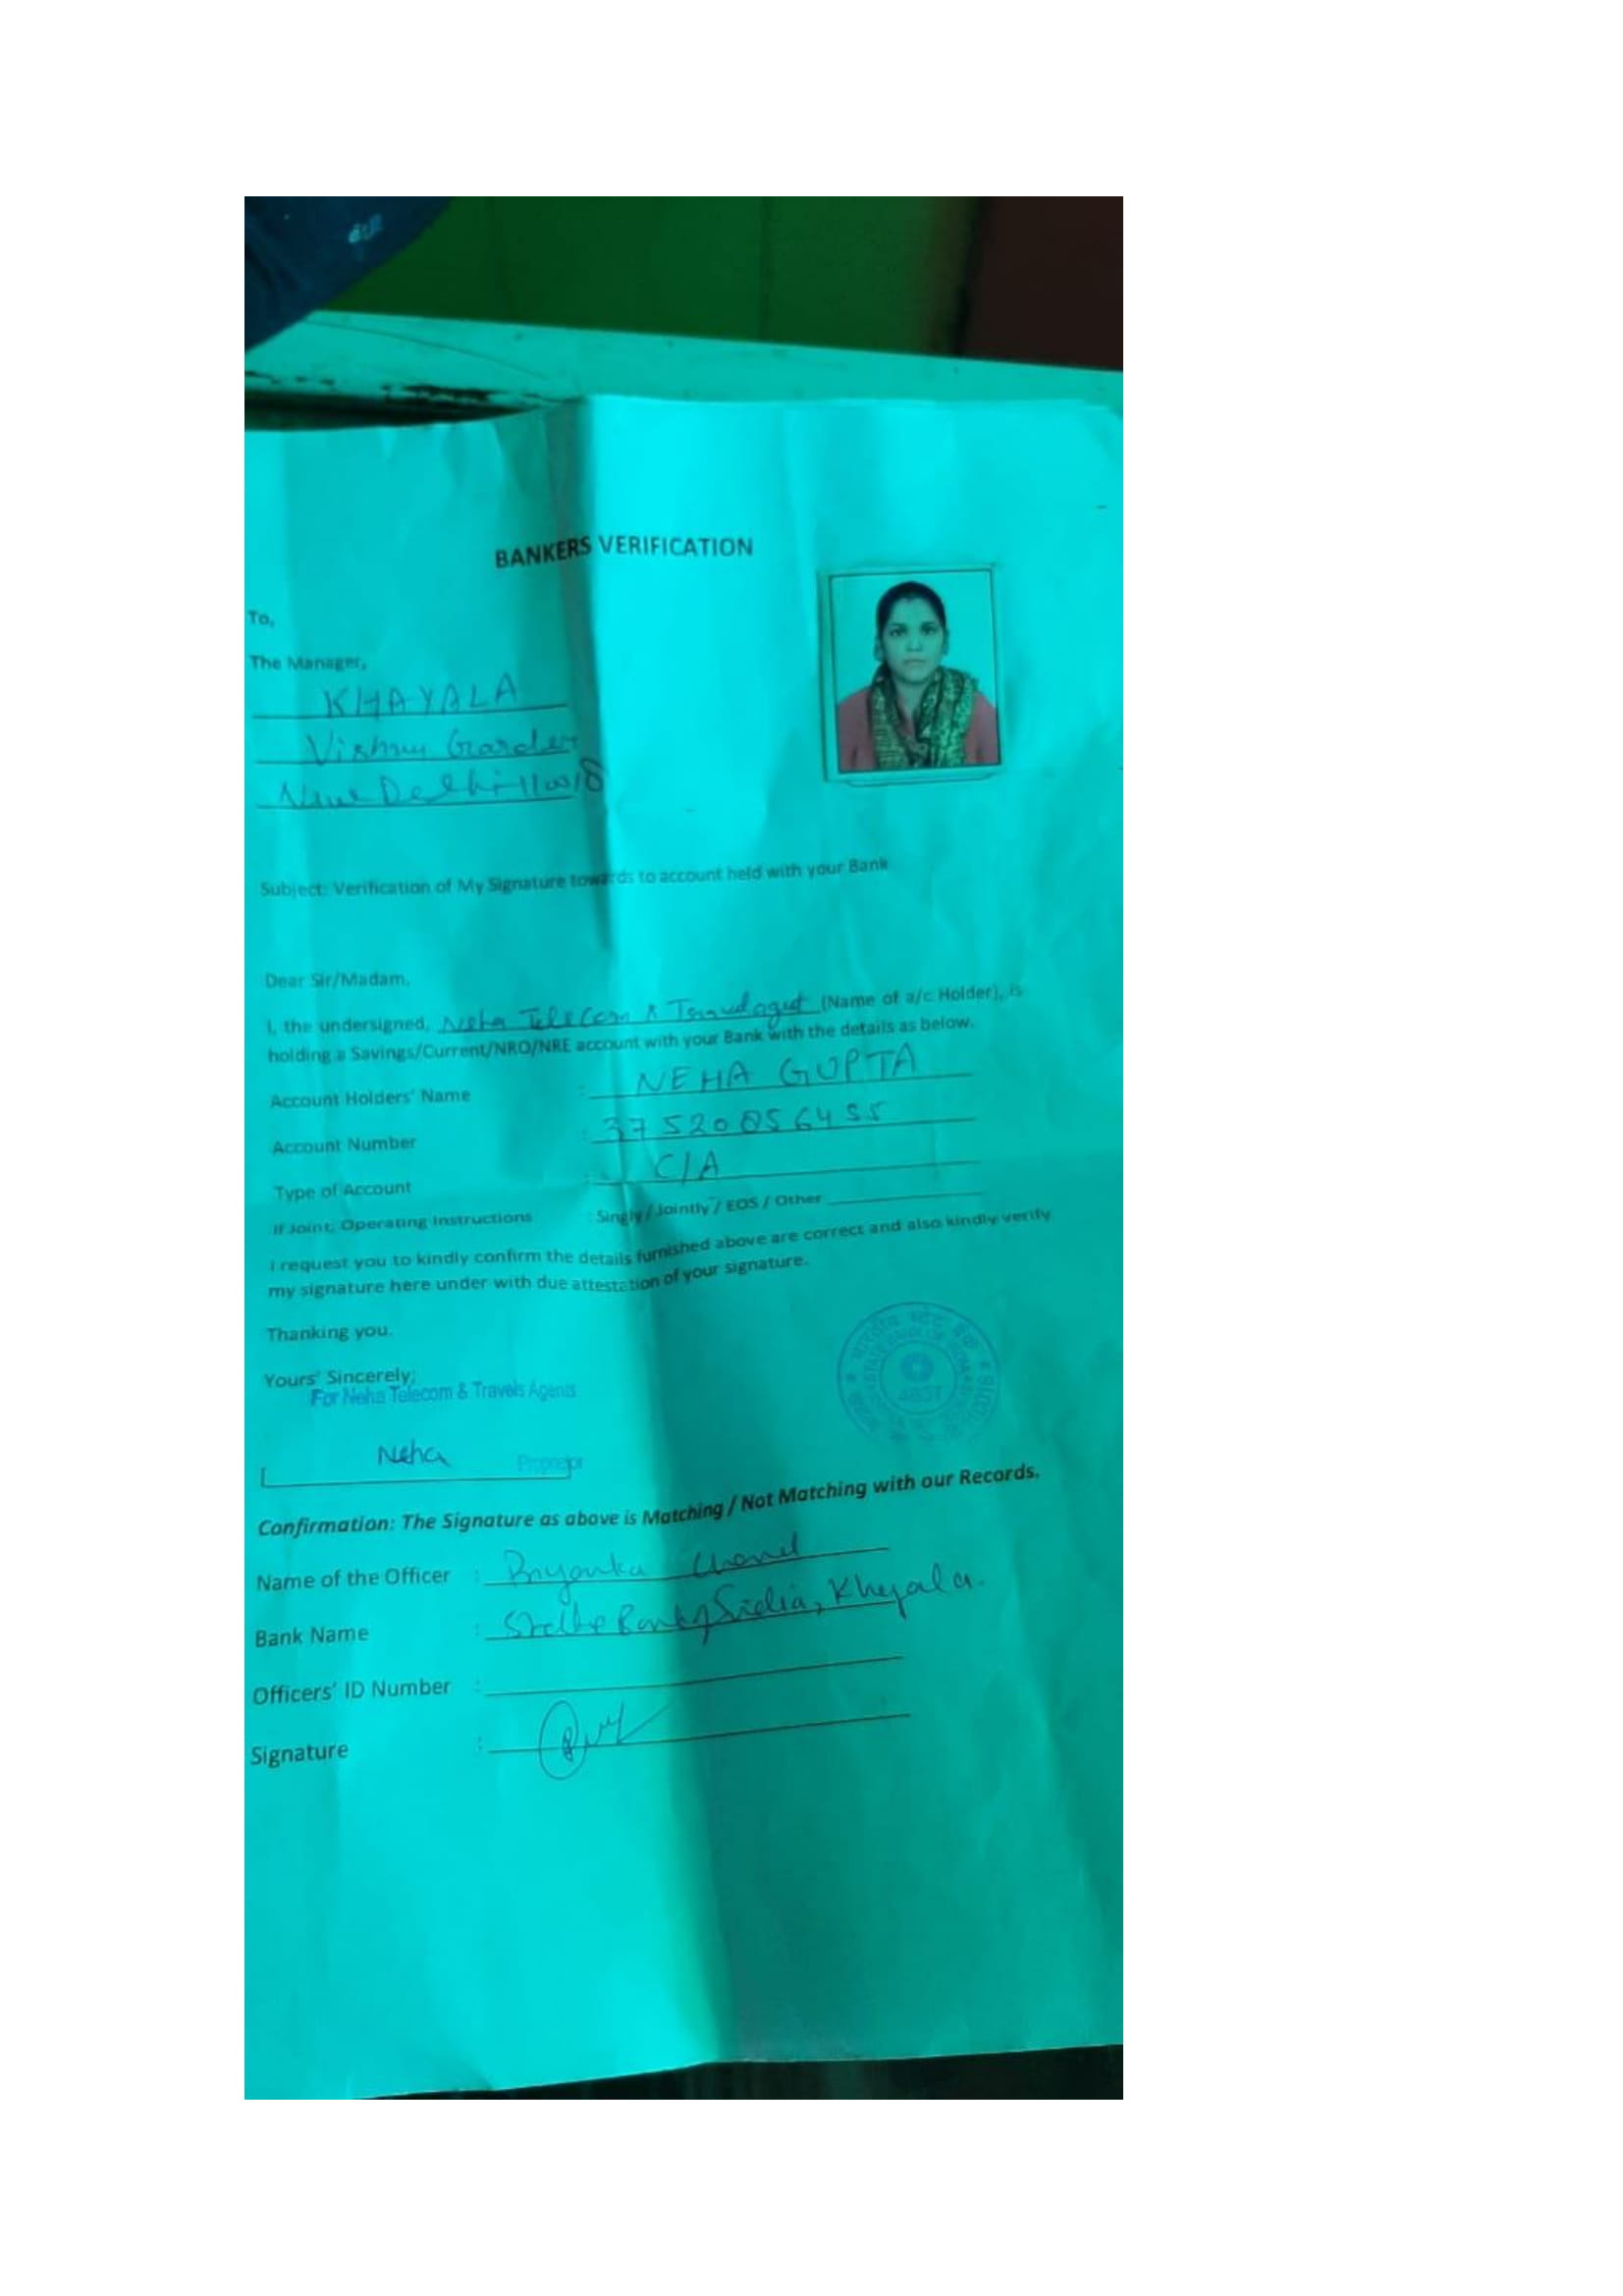 BANKERS VERIFICATION
To,
The Manager,
KHAYALA
Vishnu Garden
New Delhi-110018
Subject: Verification of My Signature towards to account held with your Bank
Dear Sir/Madam,
I, the undersigned, Neha Telecom & (Name of a/c Holder), is
holding a Savings/Current/NRO/NRE account with your Bank with the details as below.
Account Holders' Name : NEHA GUPTA
Account Number : 37520856455
Type of Account : C/A
If Joint, Operating Instructions : Singly / Jointly / EOS / Other
I request you to kindly confirm the details furnished above are correct and also kindly verify
my signature here under with due attestation of your signature.
Thanking you.
Yours' Sincerely;
For Neha Telecom & Travels Agents
Neha Proprietor
Confirmation: The Signature as above is Matching / Not Matching with our Records.
Name of the Officer : Priyanka Chand
Bank Name : State Bank of India, Khyala.
Officers' ID Number :
Signature :